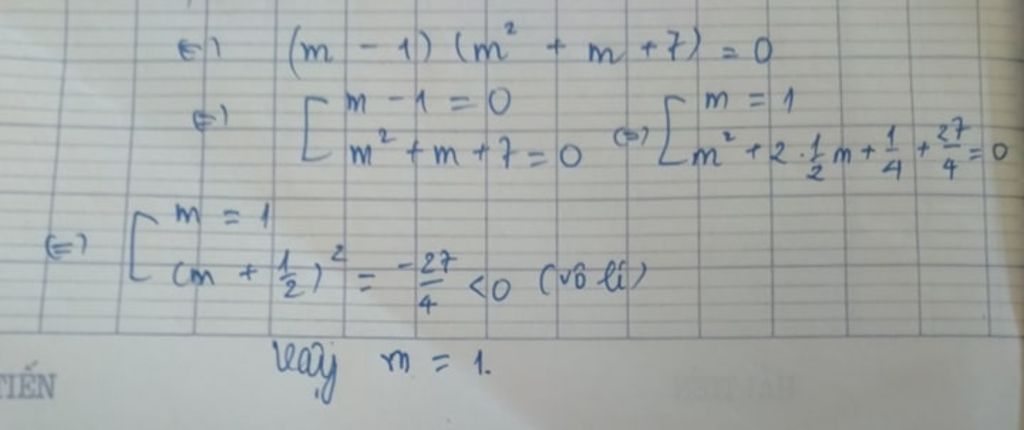 ⇔ (m - 1)(m² + m + 7) = 0
⇔ [ m - 1 = 0 ; m² + m + 7 = 0 ⇔ [ m = 1 ; m² + 2 . 1/2 m + 1/4 + 27/4 = 0
⇔ [ m = 1 ; (m + 1/2)² = -27/4 < 0 (vô lí)
Vậy m = 1.
TIẾN
HẢI TIẾN